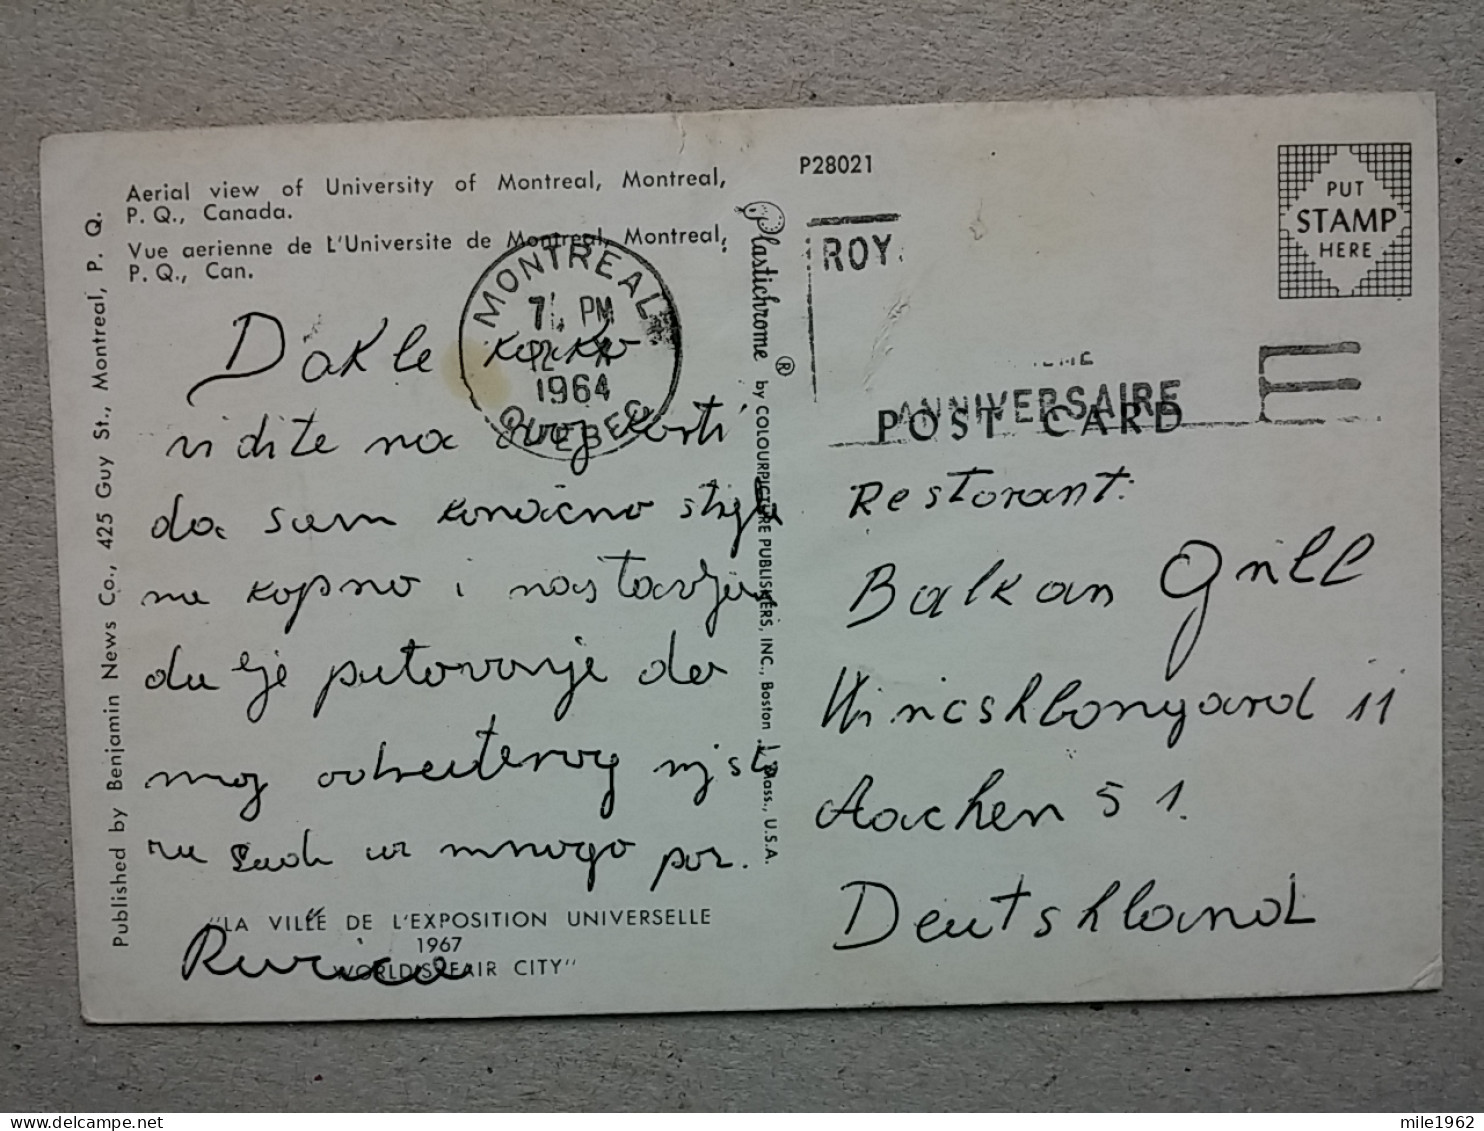 Aerial view of University of Montreal, Montreal,
P. Q., Canada.
Vue aerienne de L'Universite de Montreal, Montreal,
P. Q., Can.
Published by Benjamin News Co., 425 Guy St., Montreal, P. Q.
MONTREAL
PM
1964
QUEBEC
Dakle kako
vidite na ovoj karti
da sam konačno stigla
na kopno i nastavljam
dalje putovanje do
mog odredišta
mnogo poz.
Ruzica
"LA VILLE DE L'EXPOSITION UNIVERSELLE
1967
WORLD'S FAIR CITY"
Plastichrome ® by COLOURPICTURE PUBLISHERS, INC., Boston 1, Mass., U.S.A.
P28021
ROY.
ANNIVERSAIRE
PUT
STAMP
HERE
POST CARD
Restorant:
Balkan Grill
11
Aachen 51.
Deutshland
mile1962